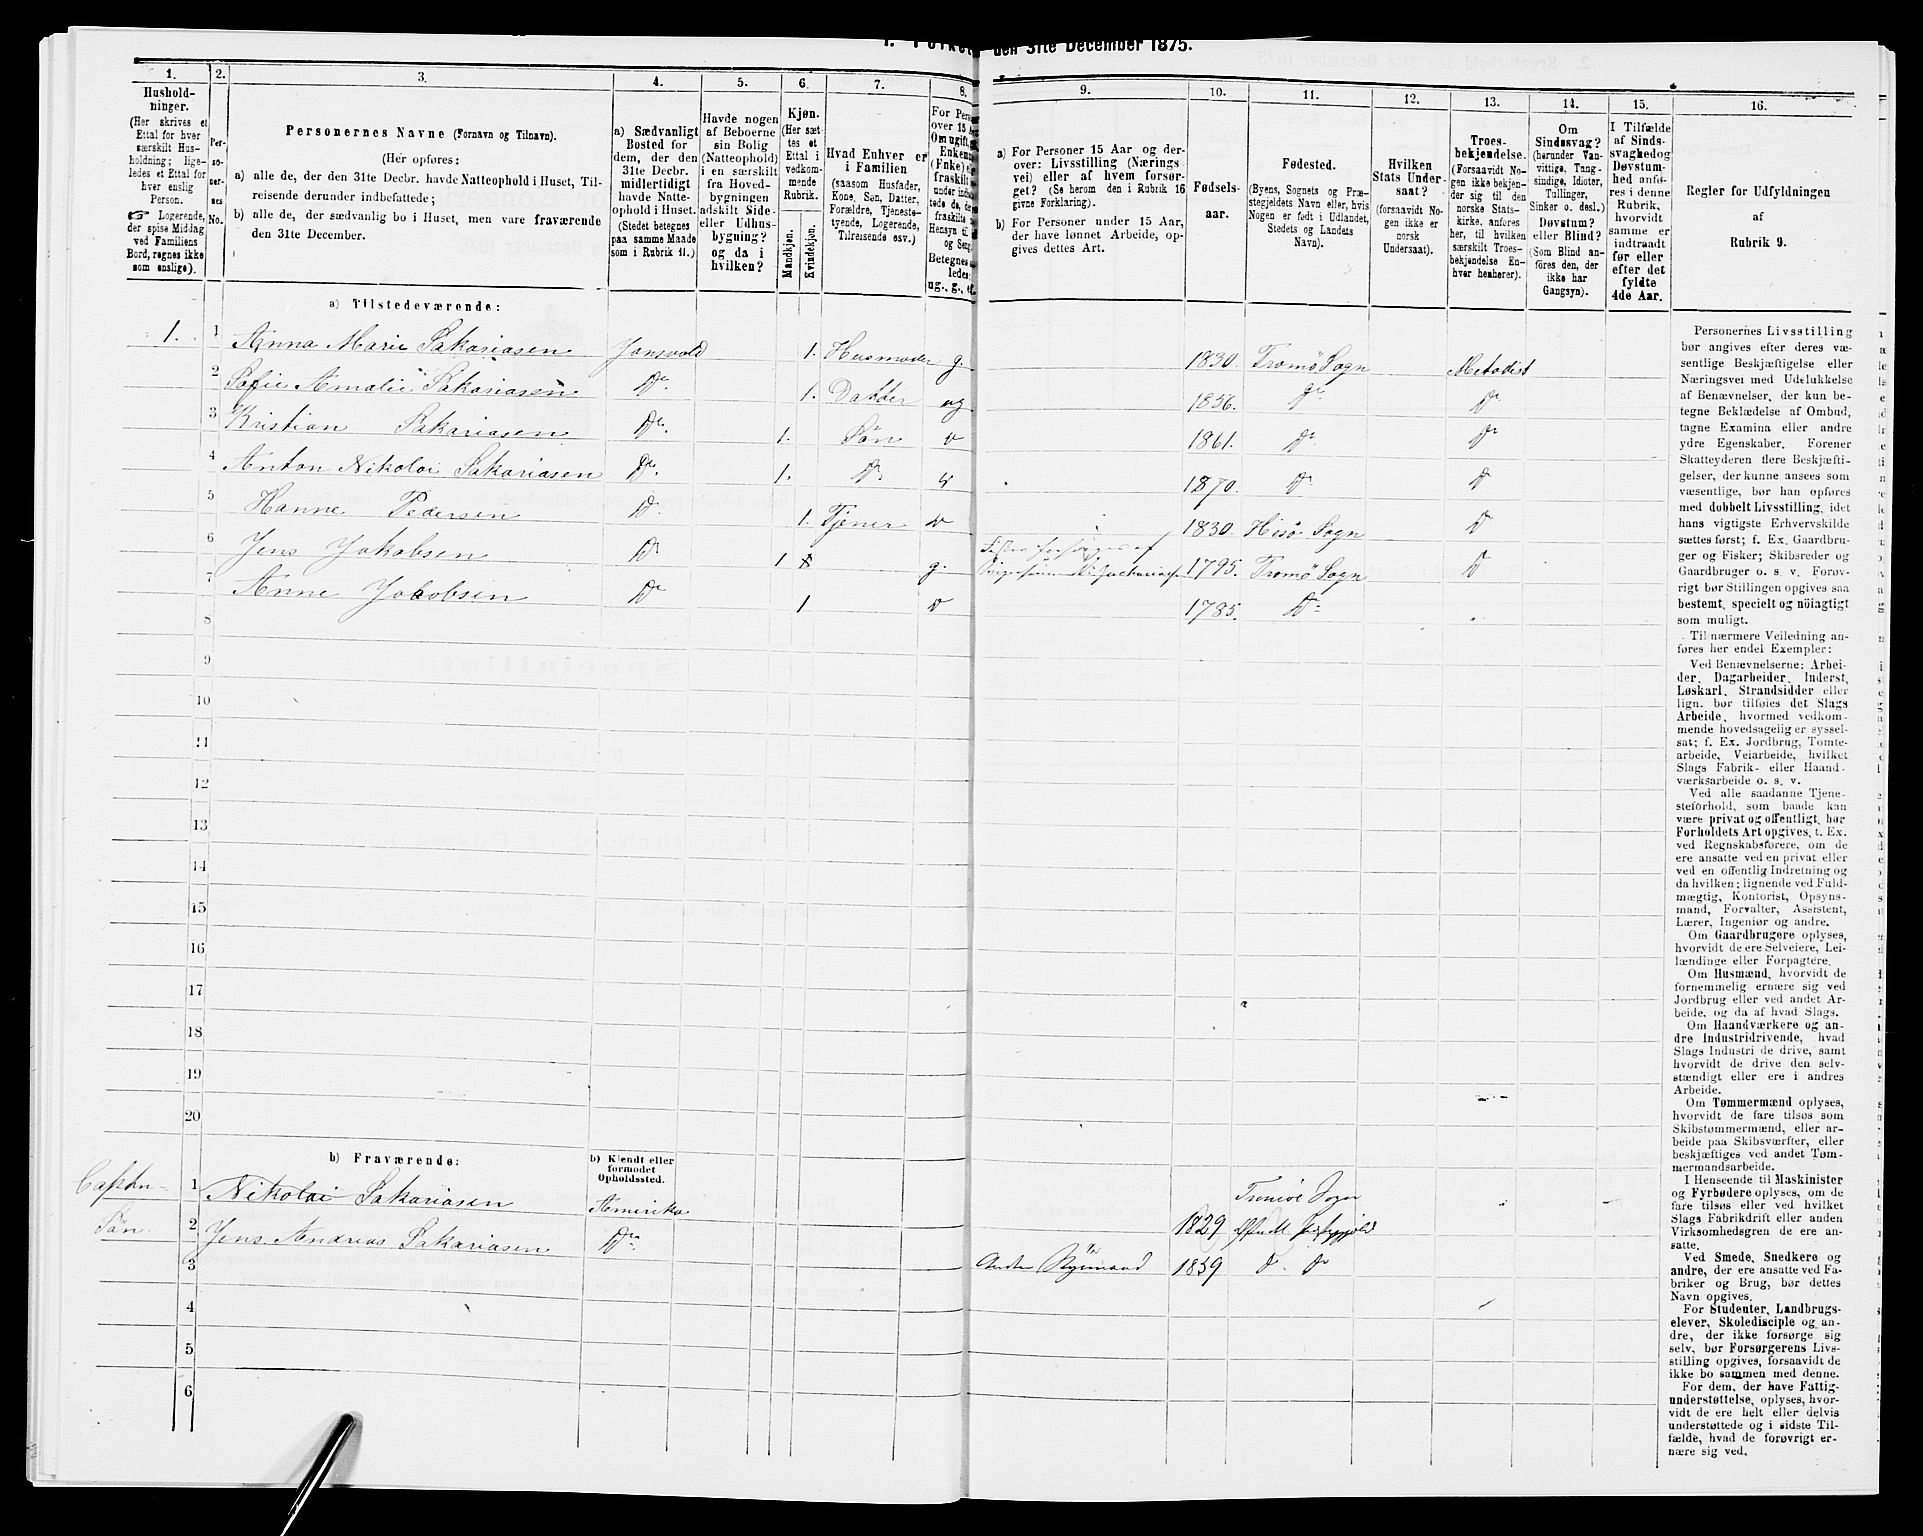 den 31te December 1875.
1.
Hushold-
ninger.
(Her skrives et
Ettal for hver
særskilt Hus-
holdning; lige-
ledes et Ettal for
hver enslig
Person.
☞ Logerende,
der spise Middag
ved Familiens
Bord, regnes ikke
som enslige).
2.
Per-
so-
ner-
nes
No.
3.
Personernes Navne (Fornavn og Tilnavn).
(Her opføres:
a) alle de, der den 31te Decbr. havde Natteophold i Huset, Til-
reisende derunder indbefattede;
b) alle de, der sædvanlig bo i Huset, men vare fraværende
den 31te December.
4.
a) Sædvanligt
Bosted for
dem, der den
31te Decbr.
midlertidigt
havde Natte-
ophold i Huset.
(Stedet betegnes
paa samme Maade
som i Rubrik 11.)
5.
Havde nogen
af Beboerne
sin Bolig
(Natteophold)
i en særskilt
fra Hoved-
bygningen
adskilt Side-
eller Udhus-
bygning?
og da i
hvilken?
6.
Kjøn.
(Her sæt-
tes et
Ettal i
vedkom-
mende
Rubrik.
Mandkjøn.
Kvindekjøn.
7.
Hvad Enhver er
i Familien
(saasom Husfader,
Kone, Søn, Datter,
Forældre, Tjeneste-
tyende, Logerende,
Tilreisende osv.)
8.
9.
a) For Personer 15 Aar og der-
over: Livsstilling (Nærings
vei) eller af hvem forsør-
get? (Se herom den i Rubrik 16
givne Forklaring).
b) For Personer under 15 Aar,
der have lønnet Arbeide, op-
gives dettes Art.
10.
Fødsels-
aar.
11.
Fødested.
(Byens, Sognets og Præ-
stegjeldets Navn eller, hvis
Nogen er født i Udlandet,
Stedets og Landets
Navn).
12.
Hvilken
Stats Under
saat?
(forsaavidt No-
gen ikke er
norsk
Undersaat).
13.
Troes-
bekjendelse.
(Forsaavidt No-
gen ikke bekjen-
der sig til den
norske Stats-
kirke, anføres
her, til hvilken
særskilt Troes-
bekjendelse En-
hver henhører).
14.
Om
Sindssvag?
(herunder Van-
vittige, Tung-
sindige, Idioter,
Tullinger,
Sinker o. desl.)
Døvstum?
eller Blind?
(Som Blind an-
føres den, der
ikke har
Gangsyn).
15.
I Tilfælde
af Sinds-
svaghed og
Døvstum-
hed anfø-
res i denne
Rubrik,
hvorvidt
samme er
indtraadt
før eller
efter det
fyldte
4de Aar.
16.
Regler for Udfyldningen
af
Rubrik 9.
a) Tilstedeværende:
1. 1 Anna Marie Sakariasen Jonsvold 1. Husmoder g 1830. Tromø Sogn Metodist
2 Sofie Amalie Sakariasen Do. 1. Datter ug 1856. Do D
3 Kristian Sakariasen Do. 1. Søn D 1861. Do Do
4 Anton Nikolai Sakariasen Do. 1. Do 1870. Do D
5 Hanne Pedersen Do. 1. Tjener D 1830. Hisø Sogn D
6 Jens Jakobsen Do 1 g. 1795. Tromø Sogn D
7 Anne Jakobsen Do 1 D 1785. Do
8
9
10
11
12
13
14
15
16
17
18
19
20
b) Fraværende:
b) Kjendt eller
formodet
Opholdssted.
1 Nikolai Sakariasen Amerika 1829 Tromøe Sogn
Søn. 2 Jens Andreas Sakariasen Do 1859 D. Do
3
4
5
6
Personernes Livsstilling
bør angives efter deres væ-
sentlige Beskjæftigelse eller
Næringsvei med Udelukkelse
af Benævnelser, der kun be-
tegne Beklædelse af Ombud,
tagne Examina eller andre
ydre Egenskaber. Forener
Skatteyderen flere Beskjæfti-
gelser, der kunne ansees som
væsentlige, bør han opføres
med dobbelt Livsstilling, idet
hans vigtigste Erhvervskilde
sættes først; f. Ex. Gaardbru-
ger og Fisker; Skibsreder og
Gaardbruger o. s. v. Forøv-
rigt bør Stillingen opgives saa
bestemt, specielt og nöiagtigt
som muligt.
Til nærmere Veiledning an-
føres her endel Exempler:
Ved Benævnelserne: Arbei-
der, Dagarbeider, Inderst,
Løskarl, Strandsidder eller
lign. bør tilføies det Slags
Arbeide, hvormed vedkom-
mende hovedsagelig er syssel-
sat; f. Ex. Jordbrug, Tomte-
arbeide, Veiarbeide, hvilket
Slags Fabrik- eller Haand-
værksarbeide o. s. v.
Ved alle saadanne Tjene-
steforhold, som baade kan
være privat og offentligt, bør
Forholdets Art opgives, t. Ex.
ved Regnskabsførere, om de
ere ansatte ved en privat eller
ved en offentlig Indretning og
da hvilken; lignende ved Fuld-
mægtig, Kontorist, Opsyns-
mand, Forvalter, Assistent,
Lærer, Ingeniør og andre.
Om Gaardbrugere oplyses,
hvorvidt de ere Selveiere, Lei-
lændinge eller Forpagtere.
Om Husmænd, hvorvidt de
fornemmelig ernære sig ved
Jordbrug eller ved andet Ar-
beide, og da af hvad Slags.
Om Haandværkere og an-
dre Industridrivende, hvad
Slags Industri de drive, samt
hvorvidt de drive den selv-
stændigt eller ere i andres
Arbeide.
Om Tømmermænd oplyses,
hvorvidt de fare tilsøs som
Skibstømmermænd, eller ar-
beide paa Skibsværfter, eller
beskjæftiges ved andet Tøm-
mermandsarbeide.
I Henseende til Maskinister
og Fyrbødere oplyses, om de
fare tilsøs eller ved hvilket
Slags Fabrikdrift eller anden
Virksomhedsgren de ere an-
satte.
Ved Smede, Snedkere og
andre, der ere ansatte ved Fa-
briker og Brug, bør dettes
Navn opgives.
For Studenter, Landbrugs-
elever, Skoledisciple og an-
dre, der ikke forsørge sig
selv, bør Forsørgerens Livs-
stilling opgives, forsaavidt de
ikke bo sammen med denne.
For dem, der have Fattig-
understøttelse, oplyses, hvor-
vidt de ere helt eller delvis
understøttede og i sidste Til-
fælde, hvad de forøvrigt er-
nære sig ved.